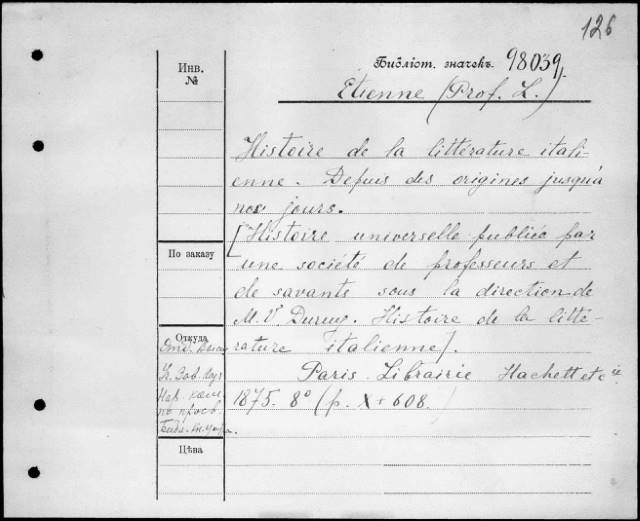 126
Инв. №
Библіот. значекъ 98039.
Etienne (Prof. L.)
Histoire de la littérature itali-
enne. Depuis des origines jusqu'à
nos jours.
[Histoire universelle publiée par
une société de professeurs et
de savants sous la direction de
M. V. Duruy. Histoire de la litté-
rature italienne].
Paris. Librairie Hachette et Cie
1875. 8° (p. X + 608.)
По заказу
Откуда
Нар. ком.
по просв.
Цѣна